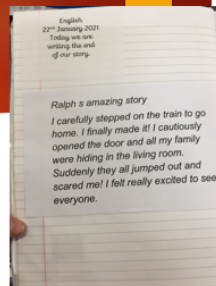 English
22nd January 2021
Today we are
writing the end
of our story.
Ralph s amazing story
I carefully stepped on the train to go
home. I finally made it! I cautiously
opened the door and all my family
were hiding in the living room.
Suddenly they all jumped out and
scared me! I felt really excited to see
everyone.